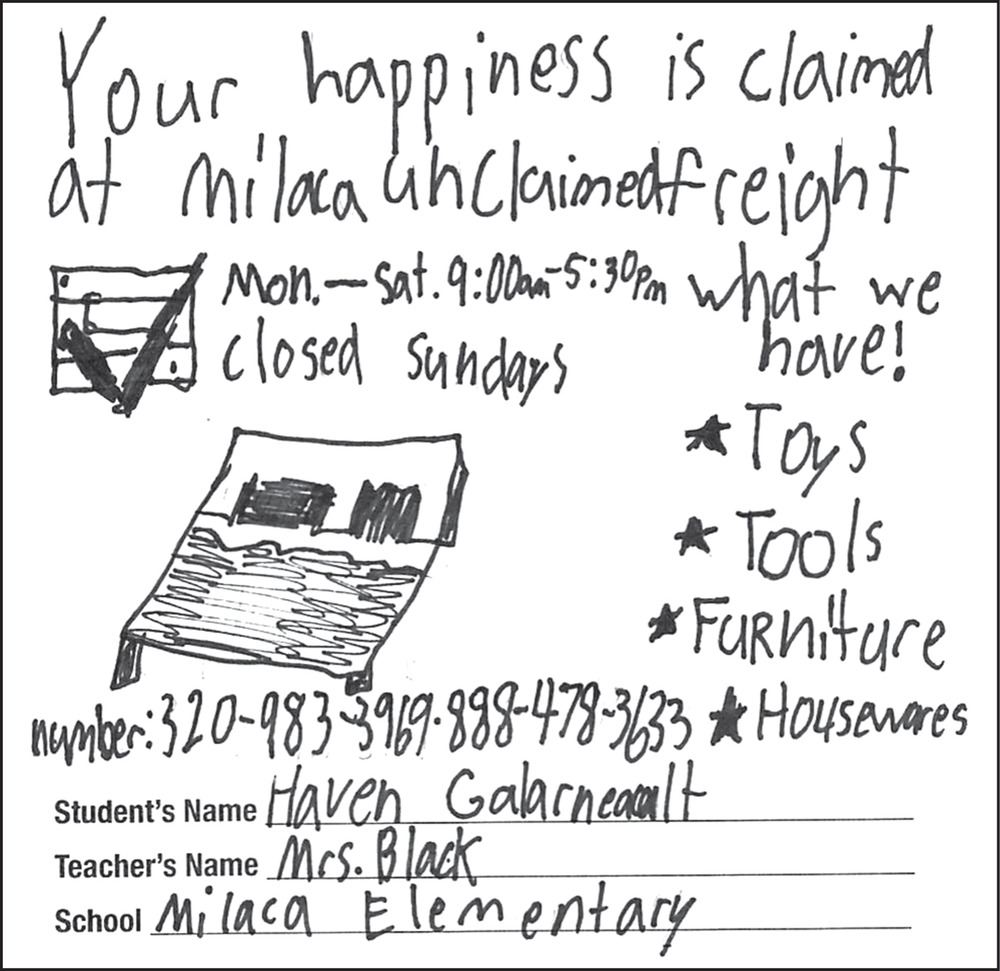 Your happiness is claimed
at milaca unclaimedfreight
Mon.—Sat. 9:00am-5:30pm
closed sundays
what we
have!
★Toys
★Tools
★FuRniture
★Housewares
number:320-983-3969.888-478-3633
Student's Name Haven Galarneault
Teacher's Name Mrs. Black
School Milaca Elementary